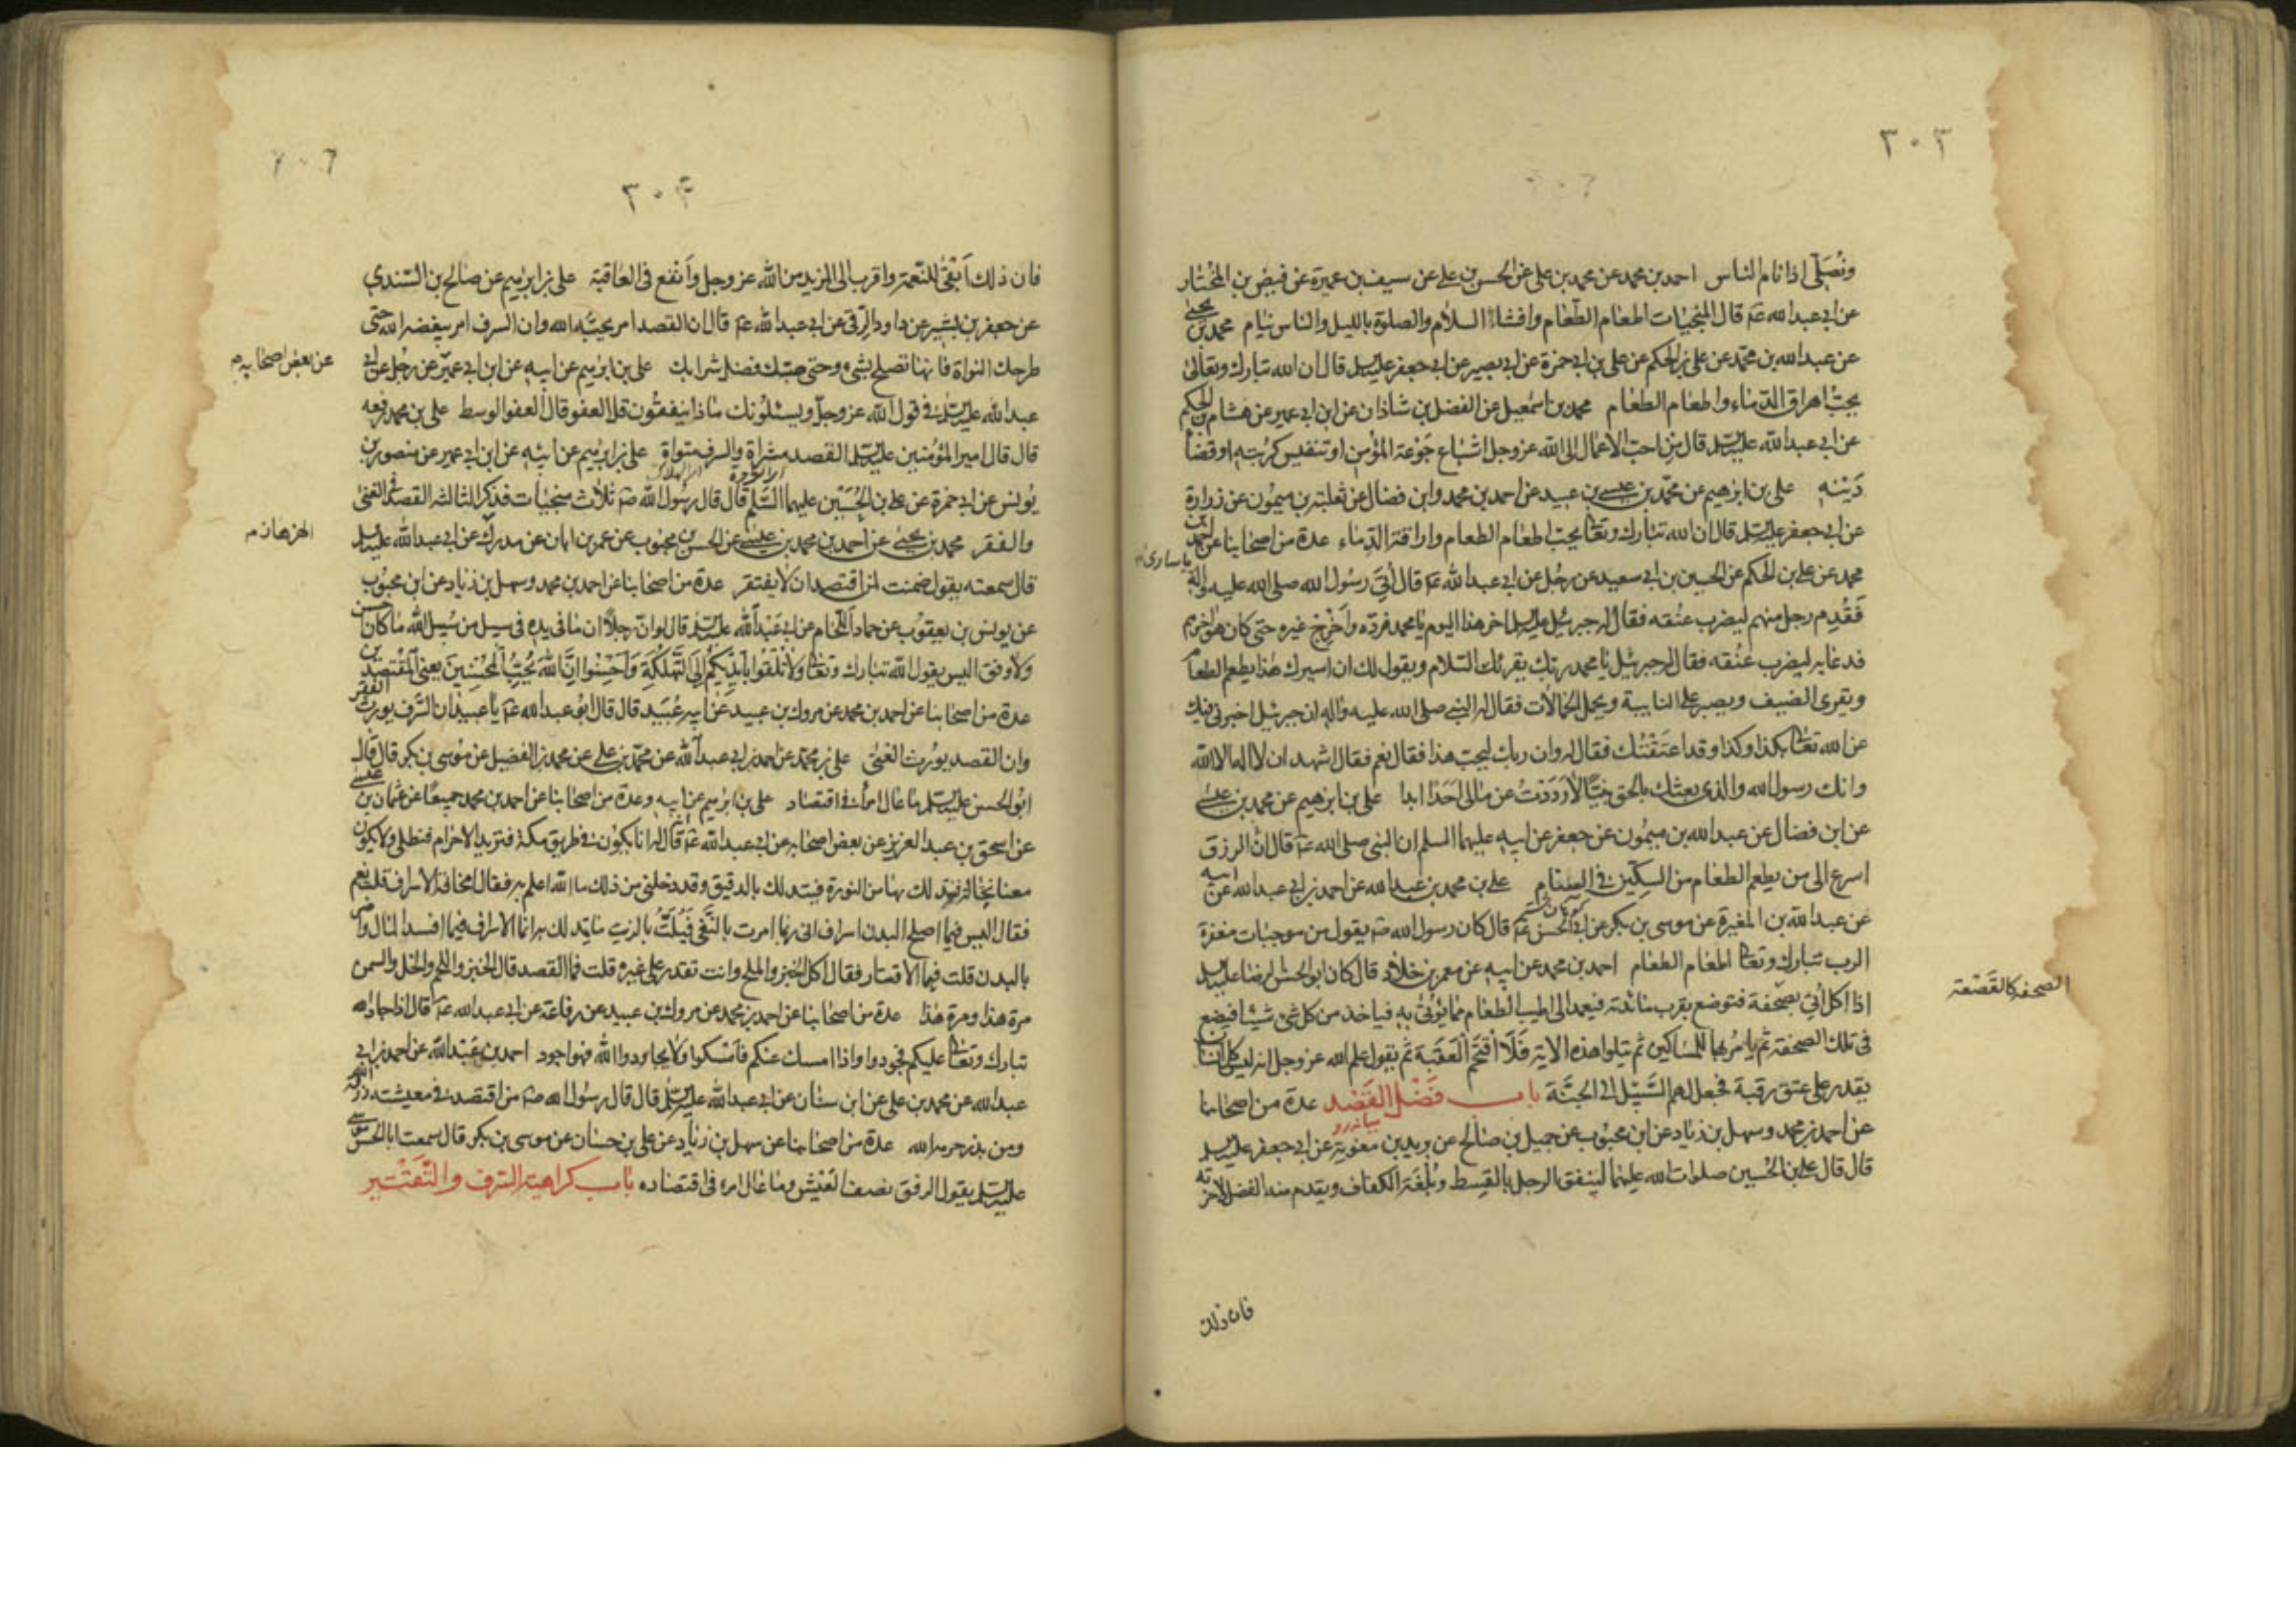 ٣٠٣
وتصلى اذا نام الناس احمد بن محمد عن محمد بن على عن الحسن بن على عن سيف بن عميرة عن فيض بن المختار
عن ابى عبد الله عم قال المنجيات اطعام الطعام وافشاء السلام والصلوة بالليل والناس نيام محمد بن يحيى
عن عبد الله بن محمد عن على بن الحكم عن على بن ابى حمزة عن ابى بصير عن ابى جعفر عليه السلم قال ان الله تبارك وتعالى
يحب اهراق الدماء واطعام الطعام محمد بن اسمعيل عن الفضل بن شاذان عن ابن ابى عمير عن هشام بن الحكم
عن ابى عبد الله عليه السلم قال من احب الاعمال الى الله عز وجل اشباع جوعة المؤمن او تنفيس كربته او قضاء
دينه على بن ابرهيم عن محمد بن عيسى بن عبيد عن احمد بن محمد وابن فضال عن ثعلبة بن ميمون عن زرارة
عن ابى جعفر عليه السلم قال ان الله تبارك وتعا يحب اطعام الطعام واراقة الدماء عدة من اصحابنا عن احمد بن
محمد عن على بن الحكم عن الحسين بن ابى سعيد عن رجل عن ابى عبد الله عم قال اتى رسول الله صلى الله عليه واله
باسارى
فقدم رجل منهم ليضرب عنقه فقال له جبرئيل عليه السلم اخر هذا اليوم يا محمد فرده واخرج غيره حتى كان هو اخرهم
فدعا به ليضرب عنقه فقال له جبرئيل يا محمد ربك يقرئك السلام ويقول لك ان اسيرك هذا يطعم الطعام
ويقرى الضيف ويصبر على النايبة ويحمل الحمالات فقال له النبى صلى الله عليه واله ان جبرئيل اخبرنى فيك
عن الله تعا بكذا وكذا وقد اعتقتك فقال له وان ربك ليحب هذا فقال نعم فقال اشهد ان لا اله الا الله
وانك رسول الله والذى بعثك بالحق نبيا لا رددت عن مالى احدا ابدا على بن ابرهيم عن محمد بن عيسى
عن ابن فضال عن عبد الله بن ميمون عن جعفر عن ابيه عليهما السلم ان النبى صلى الله عم قال ان الرزق
اسرع الى من يطعم الطعام من السكين فى السنام على بن محمد بن عبد الله عن احمد بن ابى عبد الله عن ابيه
عن عبد الله بن المغيرة عن موسى بن بكر عن ابى الحسن عم قال كان رسول الله صم يقول من موجبات مغفرة
الرب تبارك وتعا اطعام الطعام احمد بن محمد عن ابيه عن معمر بن خلاد قال كان ابو الحسن الرضا عليه السلم
اذا اكل اتى بصحفة فتوضع بقرب مائدته فيعمد الى اطيب الطعام مما يؤتى به فياخذ من كل شئ شيئا فيضع
الصحفة كالقصعة
فى تلك الصحفة ثم يامر بها للمساكين ثم يتلوا هذه الاية فلا اقتحم العقبة ثم يقول علم الله عز وجل انه ليس كل انسان
يقدر على عتق رقبة فجعل لهم السبيل الى الجنة باب فضل القصد عدة من اصحابنا
ميانه رو
عن احمد بن محمد وسهل بن زياد عن ابن محبوب عن جميل بن صالح عن بريد بن معوية عن ابى جعفر عليه السلم
قال قال على بن الحسين صلوات الله عليهما لينفق الرجل بالقسط وبلغة الكفاف ويقدم منه الفضل لاخرته
فان ذلك
٣٠٤
فان ذلك ابقى للنعمة واقرب الى المزيد من الله عز وجل وانفع فى العاقبة على بن ابرهيم عن صالح بن السندى
عن جعفر بن بشير عن داود الرقى عن ابى عبد الله عم قال ان القصد امر يحبه الله وان السرف امر يبغضه الله حتى
طرحك النواة فانها تصلح بشئ وحتى صبك فضل شرابك على بن ابرهيم عن ابيه عن ابن ابى عمير عن رجل عن ابى
عن بعض اصحابه
عبد الله عليه السلم فى قول الله عز وجل ويسئلونك ماذا ينفقون قل العفو قال العفو الوسط على بن محمد رفعه
قال قال امير المؤمنين عليه السلم القصد مثراة والسرف متواة على بن ابرهيم عن ابيه عن ابن ابى عمير عن منصور بن
يونس عن ابى حمزة عن على بن الحسين عليهما السلم قال قال رسول الله صم ثلاث منجيات فذكر الثالثة القصد فى الغنى
والفقر محمد بن يحيى عن احمد بن محمد بن عيسى عن الحسن بن محبوب عن عمر بن ابان عن مدرك عن ابى عبد الله عليه السلم
قال سمعته يقول ضمنت لمن اقتصد ان لا يفتقر عدة من اصحابنا عن احمد بن محمد وسهل بن زياد عن ابن محبوب
عن يونس بن يعقوب عن حماد اللحام عن ابى عبد الله عليه السلم قال لو ان رجلا انفق ما فى يده فى سبيل من سبيل الله ما كان احسن
ولا وفق اليس يقول الله تبارك وتعا ولا تلقوا بايديكم الى التهلكة واحسنوا ان الله يحب المحسنين يعنى المقتصدين
عدة من اصحابنا عن احمد بن محمد عن مروك بن عبيد عن ابيه عبيد قال قال ابو عبد الله عم يا عبيد ان السرف يورث الفقر
وان القصد يورث الغنى على بن محمد عن احمد بن ابى عبد الله عن محمد بن على عن محمد بن الفضيل عن موسى بن بكر قال قال
ابو الحسن عليه السلم ما عال امرئ فى اقتصاد على بن ابرهيم عن ابيه وعدة من اصحابنا عن احمد بن محمد جميعا عن عثمان بن عيسى
عن اسحق بن عبد العزيز عن بعض اصحابه عن ابى عبد الله عم انه قال له انا نكون فى طريق مكة فنريد الاحرام فنطلى ولا يكون
معنا نخالة نتدلك بها من النورة فنتدلك بالدقيق وقد دخلنى من ذلك ما الله اعلم به فقال امخافة الاسراف قلت نعم
فقال ليس فيما اصلح البدن اسراف انى ربما امرت بالنقى فيلت بالزيت فاتدلك به انما الاسراف فيما افسد المال واضر
بالبدن قلت فما الاقتار فقال اكل الخبز والملح وانت تقدر على غيره قلت فما القصد قال الخبز واللحم والخل والسمن
مرة هذا ومرة هذا عدة من اصحابنا عن احمد بن محمد عن مروك بن عبيد عن رفاعة عن ابى عبد الله عم قال اذا جاد الله
تبارك وتعا عليكم فجودوا واذا امسك عنكم فامسكوا ولا يجاودوا الله فهو اجود احمد بن عبد الله عن احمد بن ابى
عبد الله عن محمد بن على عن ابن سنان عن ابى عبد الله عليه السلم قال قال رسول الله صم من اقتصد فى معيشته رزقه الله
ومن بذر حرمه الله عدة من اصحابنا عن سهل بن زياد عن على بن حسان عن موسى بن بكر قال سمعت ابا الحسن موسى
عليه السلم يقول الرفق نصف العيش وما عال امرء فى اقتصاده باب كراهية السرف والتقتير